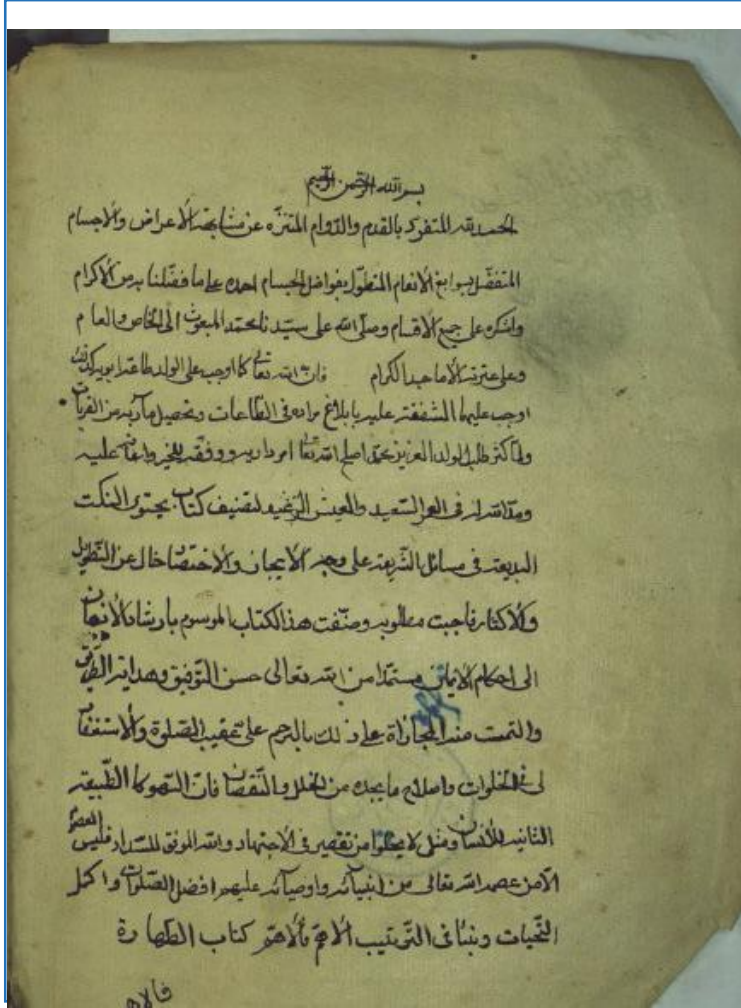 بسم الله الرحمن الرحيم
الحمد لله المتفرد بالقدم والدوام المتنزه عن مشابهة الاعراض والاجسام
المتفضل بسوابغ الانعام المتطول بفواضل الجسام احمده على ما فضلنا به من الاكرام
واشكره على جميع الاقسام وصلى الله على سيدنا محمد المبعوث الى الخاص والعام
وعلى عترته الاماجد الكرام فان الله تعالى كما اوجب على الولد طاعة ابويه كذلك
اوجب عليهما الشفقة عليه بابلاغ مراده فى الطاعات وتحصيل مآربه من القربات
ولما كثر طلب الولد العزيز محمد اصلح الله تعالى امر داريه ووفقه للخير واعانه عليه
ومد الله له فى العمر السعيد والعيش الرغيد لتصنيف كتاب يحتوى النكت
البديعة فى مسائل الشريعة على وجه الايجاز والاختصار خال عن التطويل
والاكثار فاجبت مطلوبه وصنفت هذا الكتاب الموسوم بارشاد الاذهان
الى احكام الايمان مستمدا من الله تعالى حسن التوفيق وهداية الطريق
والتمست منه المجازاة على ذلك بالترحم على عقيب الصلوة والاستغفار
لى فى الخلوات واصلاح ما يجده من الخلل والنقصان فان السهو كالطبيعة
الثانية للانسان ومثلى لا يخلوا من تقصير فى الاجتهاد والله الموفق للسداد فليس المعصوم
الا من عصمه الله تعالى من انبيائه واوصيائه عليهم افضل الصلوات واكمل
التحيات وبدأنا فى الترتيب الاهم فالاهم كتاب الطهارة